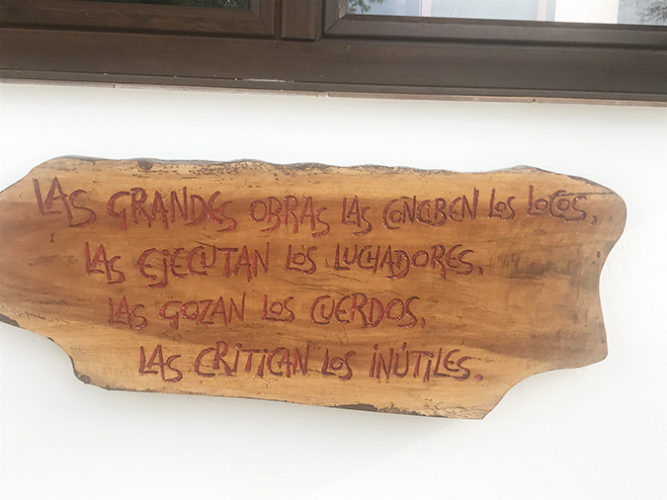 LAS GRANDES OBRAS LAS CONCIBEN LOS LOCOS,
LAS EJECUTAN LOS LUCHADORES.
LAS GOZAN LOS CUERDOS,
LAS CRITICAN LOS INÚTILES.